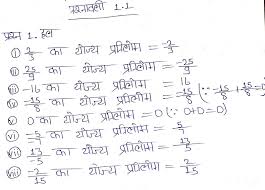 प्रश्नावली 1.1
प्रश्न 1. हल
i) 2/3 का योज्य प्रतिलोम = -2/3
ii) 25/9 का योज्य प्रतिलोम = -25/9
iii) -16 का योज्य प्रतिलोम = 16
iv) -15/8 का योज्य प्रतिलोम = 15/8 (∵ -15/8 + 15/8 = 0)
v) 0 का योज्य प्रतिलोम = 0 (∵ 0+0=0)
vi) -5/-5 का योज्य प्रतिलोम = -5/5
vii) 17/-5 का योज्य प्रतिलोम = 17/5
viii) -2/15 का योज्य प्रतिलोम = 2/15